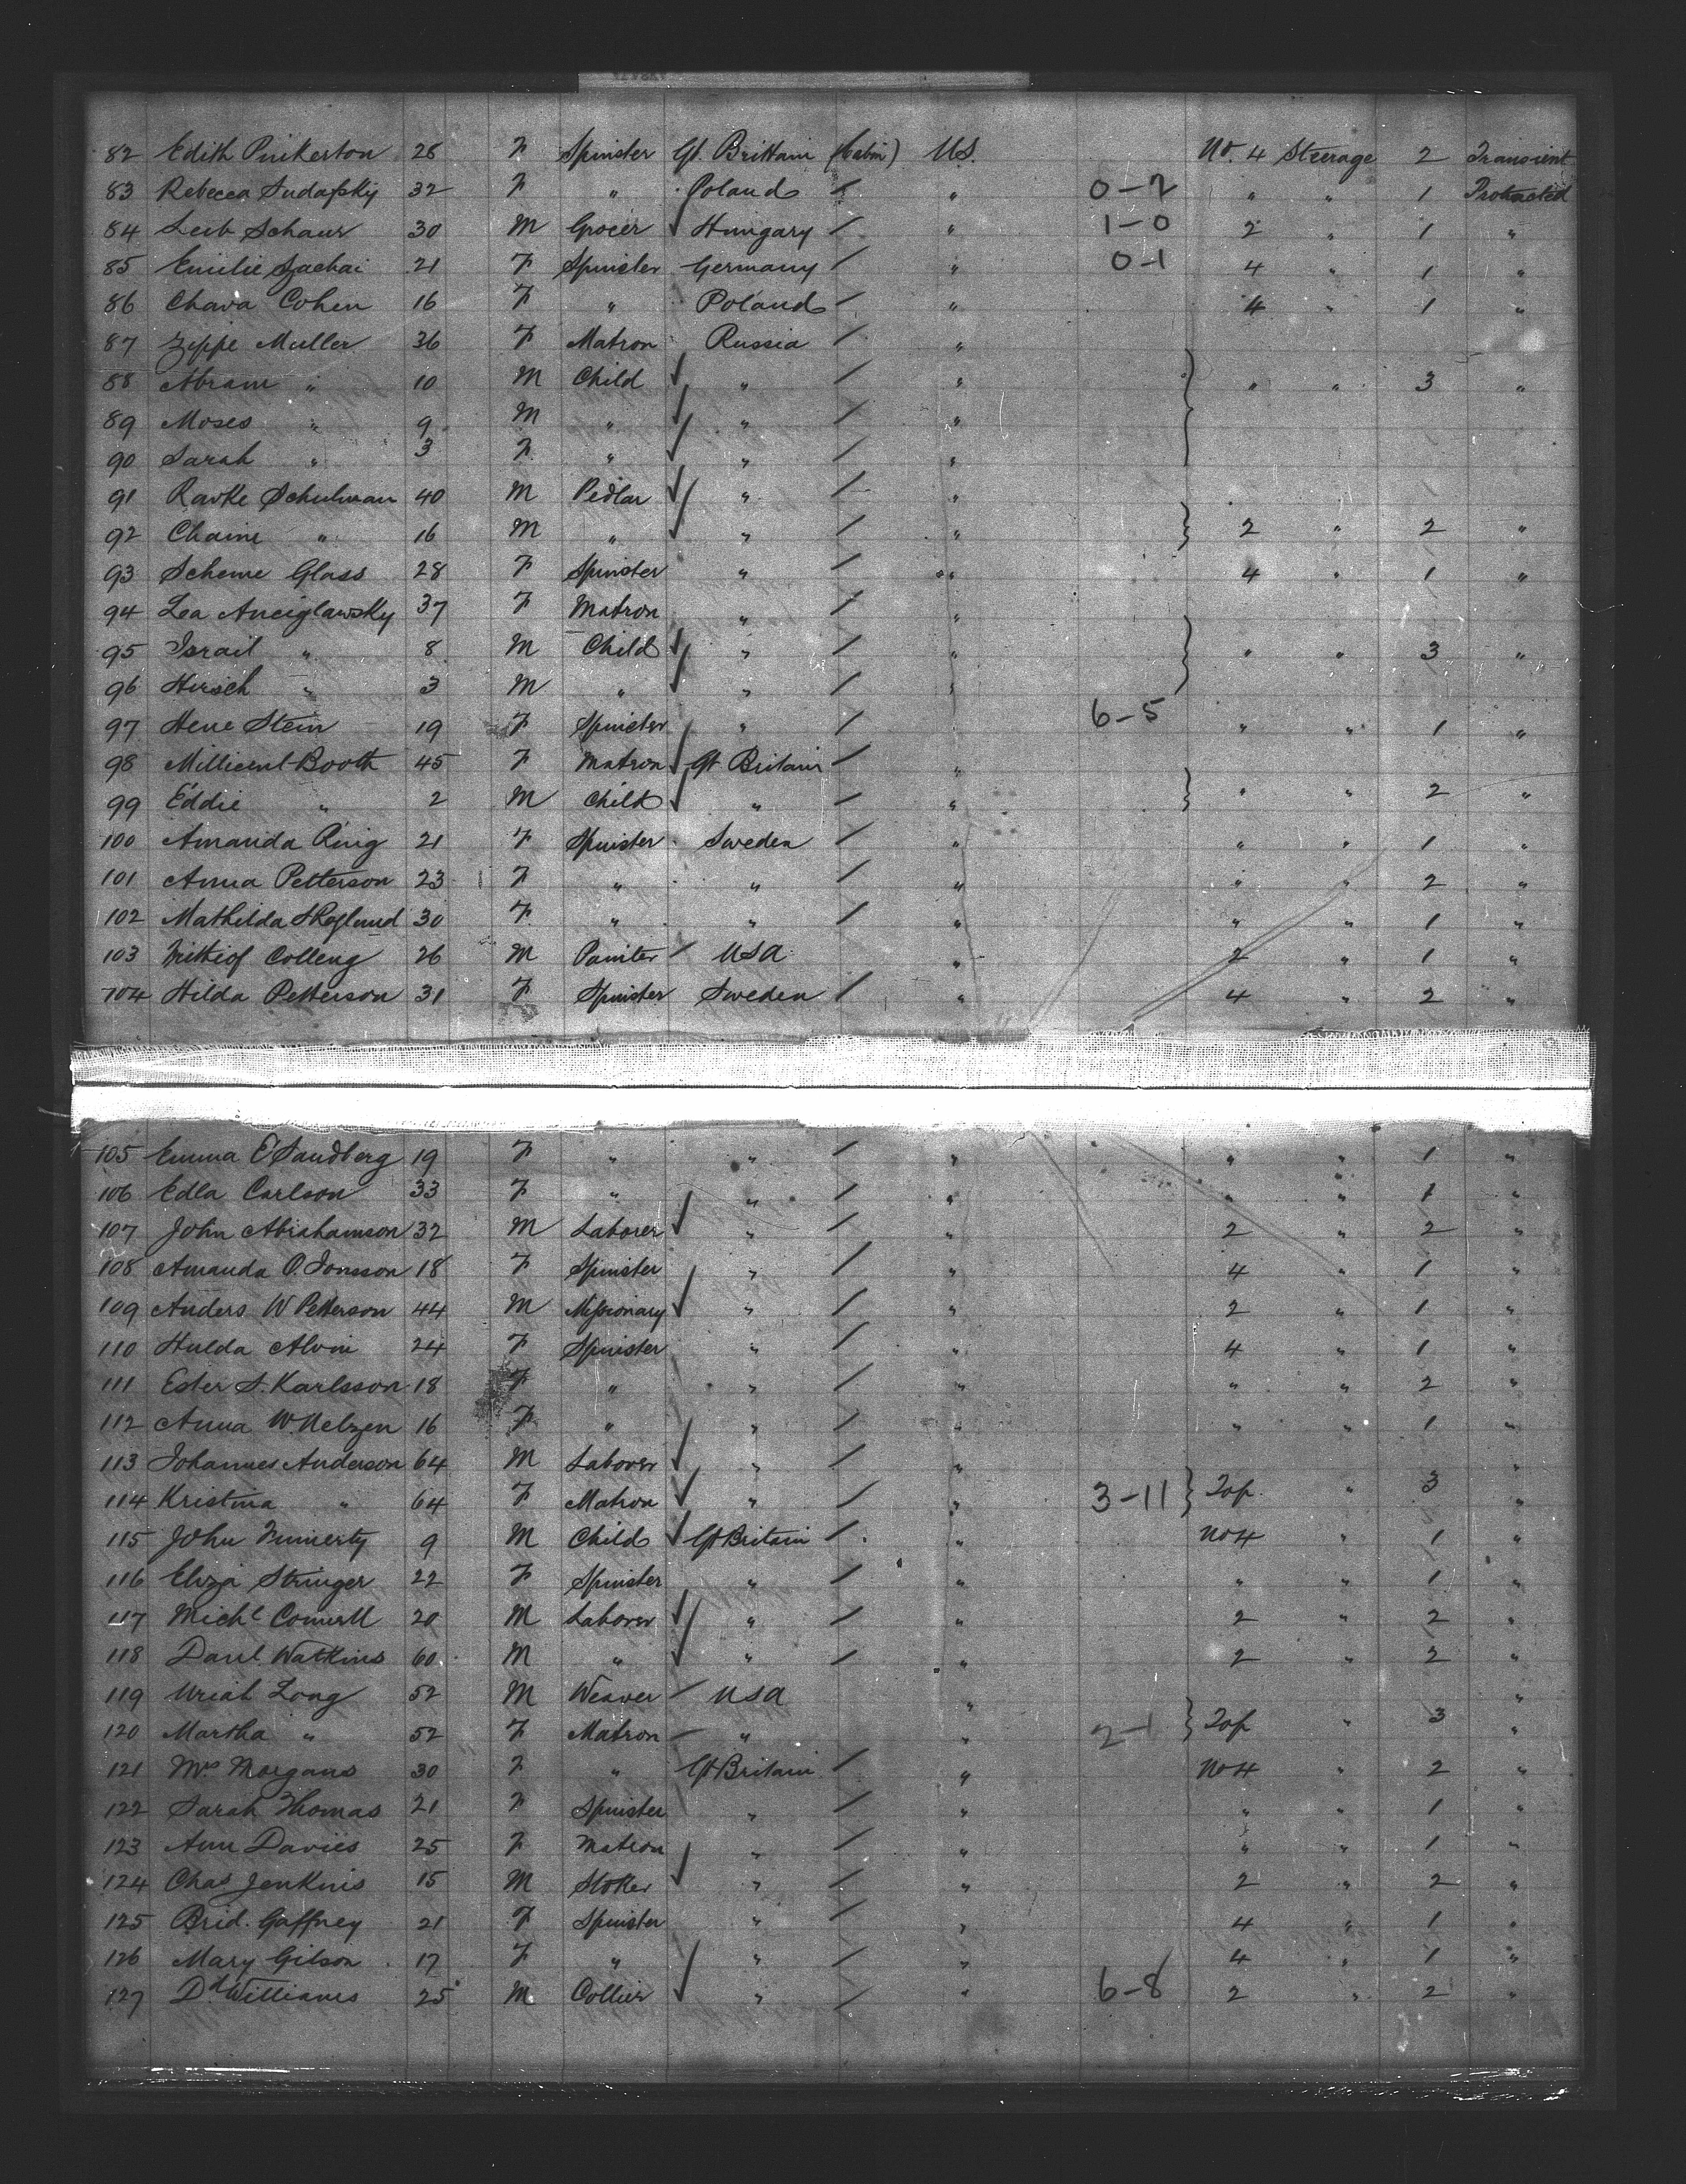 82 Edith Pinkerton 28 F Spinster Gt. Brittain (Cabin) U.S. No. 4 Steerage 2 Transient
83 Rebecca Sudafsky 32 F " Poland / " 0-2 " " 1 Protracted
84 Leib Schaur 30 M Grocer ✓ Hungary / " 1-0 2 " 1 "
85 Emilie Szachai 21 F Spinster Germany / " 0-1 4 " 1 "
86 Chava Cohen 16 F " Poland / " 4 " 1 "
87 Zippe Muller 36 F Matron Russia / "
88 Abram " 10 M Child ✓ " / " } " " 3 "
89 Moses " 9 M " ✓ " / "
90 Sarah " 3 F " ✓ " / "
91 Ravke Schulman 40 M Pedlar ✓ " / "
92 Chaim " 16 M " ✓ " / " } 2 " 2 "
93 Scheme Glass 28 F Spinster " / " 4 " 1 "
94 Lea Anciglawsky 37 F Matron " / "
95 Israil " 8 M Child ✓ " / " } " " 3 "
96 Hirsch " 3 M " ✓ " / "
97 Hene Stein 19 F Spinster " / 6-5 " " 1 "
98 Millicent Booth 45 F Matron ✓ Gt Britain / "
99 Eddie " 2 M Child ✓ " / " } " " 2 "
100 Amanda Ring 21 F Spinster Sweden / " " " 1 "
101 Anna Petterson 23 F " " / " " " 2 "
102 Mathilda Skoglund 30 F " " / " " " 1 "
103 Frithiof Colleng 26 M Painter / USA " 2 " 1 "
104 Hilda Petterson 31 F Spinster Sweden / " 4 " 2 "
105 Emma E Sandberg 19 F " " / " " " 1 "
106 Edla Carlson 33 F " " / " " " 1 "
107 John Abrahamson 32 M Laborer ✓ " / " 2 " 2 "
108 Amanda O. Jonsson 18 F Spinster " / " 4 " 1 "
109 Anders W Petterson 44 M Missionary ✓ " / " 2 " 1 "
110 Hulda Alvin 24 F Spinster " / " 4 " 1 "
111 Ester S. Karlsson 18 F " " / " " " 2 "
112 Anna W. Nelzen 16 F " " / " " " 1 "
113 Johannes Anderson 64 M Laborer ✓ " / " "
114 Kristina " 64 F Matron ✓ " / " 3-11 } Top " 3 "
115 John Finnerty 9 M Child ✓ Gt Britain / " No 4 " 1 "
116 Eliza Stringer 22 F Spinster " / " " " 1 "
117 Michl 20 M Laborer ✓ " / " 2 " 2 "
118 Danl. Watkins 60 M " ✓ " / " 2 " 2 "
119 Uriah Long 52 M Weaver / USA " "
120 Martha " 52 F Matron / " " 2-1 } Top " 3 "
121 Mrs Morgans 30 F " Gt Britain / " No 4 " 2 "
122 Sarah Thomas 21 F Spinster " / " " " 1 "
123 Ann Davies 25 F Matron " / " " " 1 "
124 Chas Jenkins 15 M Stoker ✓ " / " 2 " 2 "
125 Brid. Gaffney 21 F Spinster " / " 4 " 1 "
126 Mary Gilson 17 F " " / " 4 " 1 "
127 Dd Williams 25 M Collier ✓ " / " 6-8 2 " 2 "